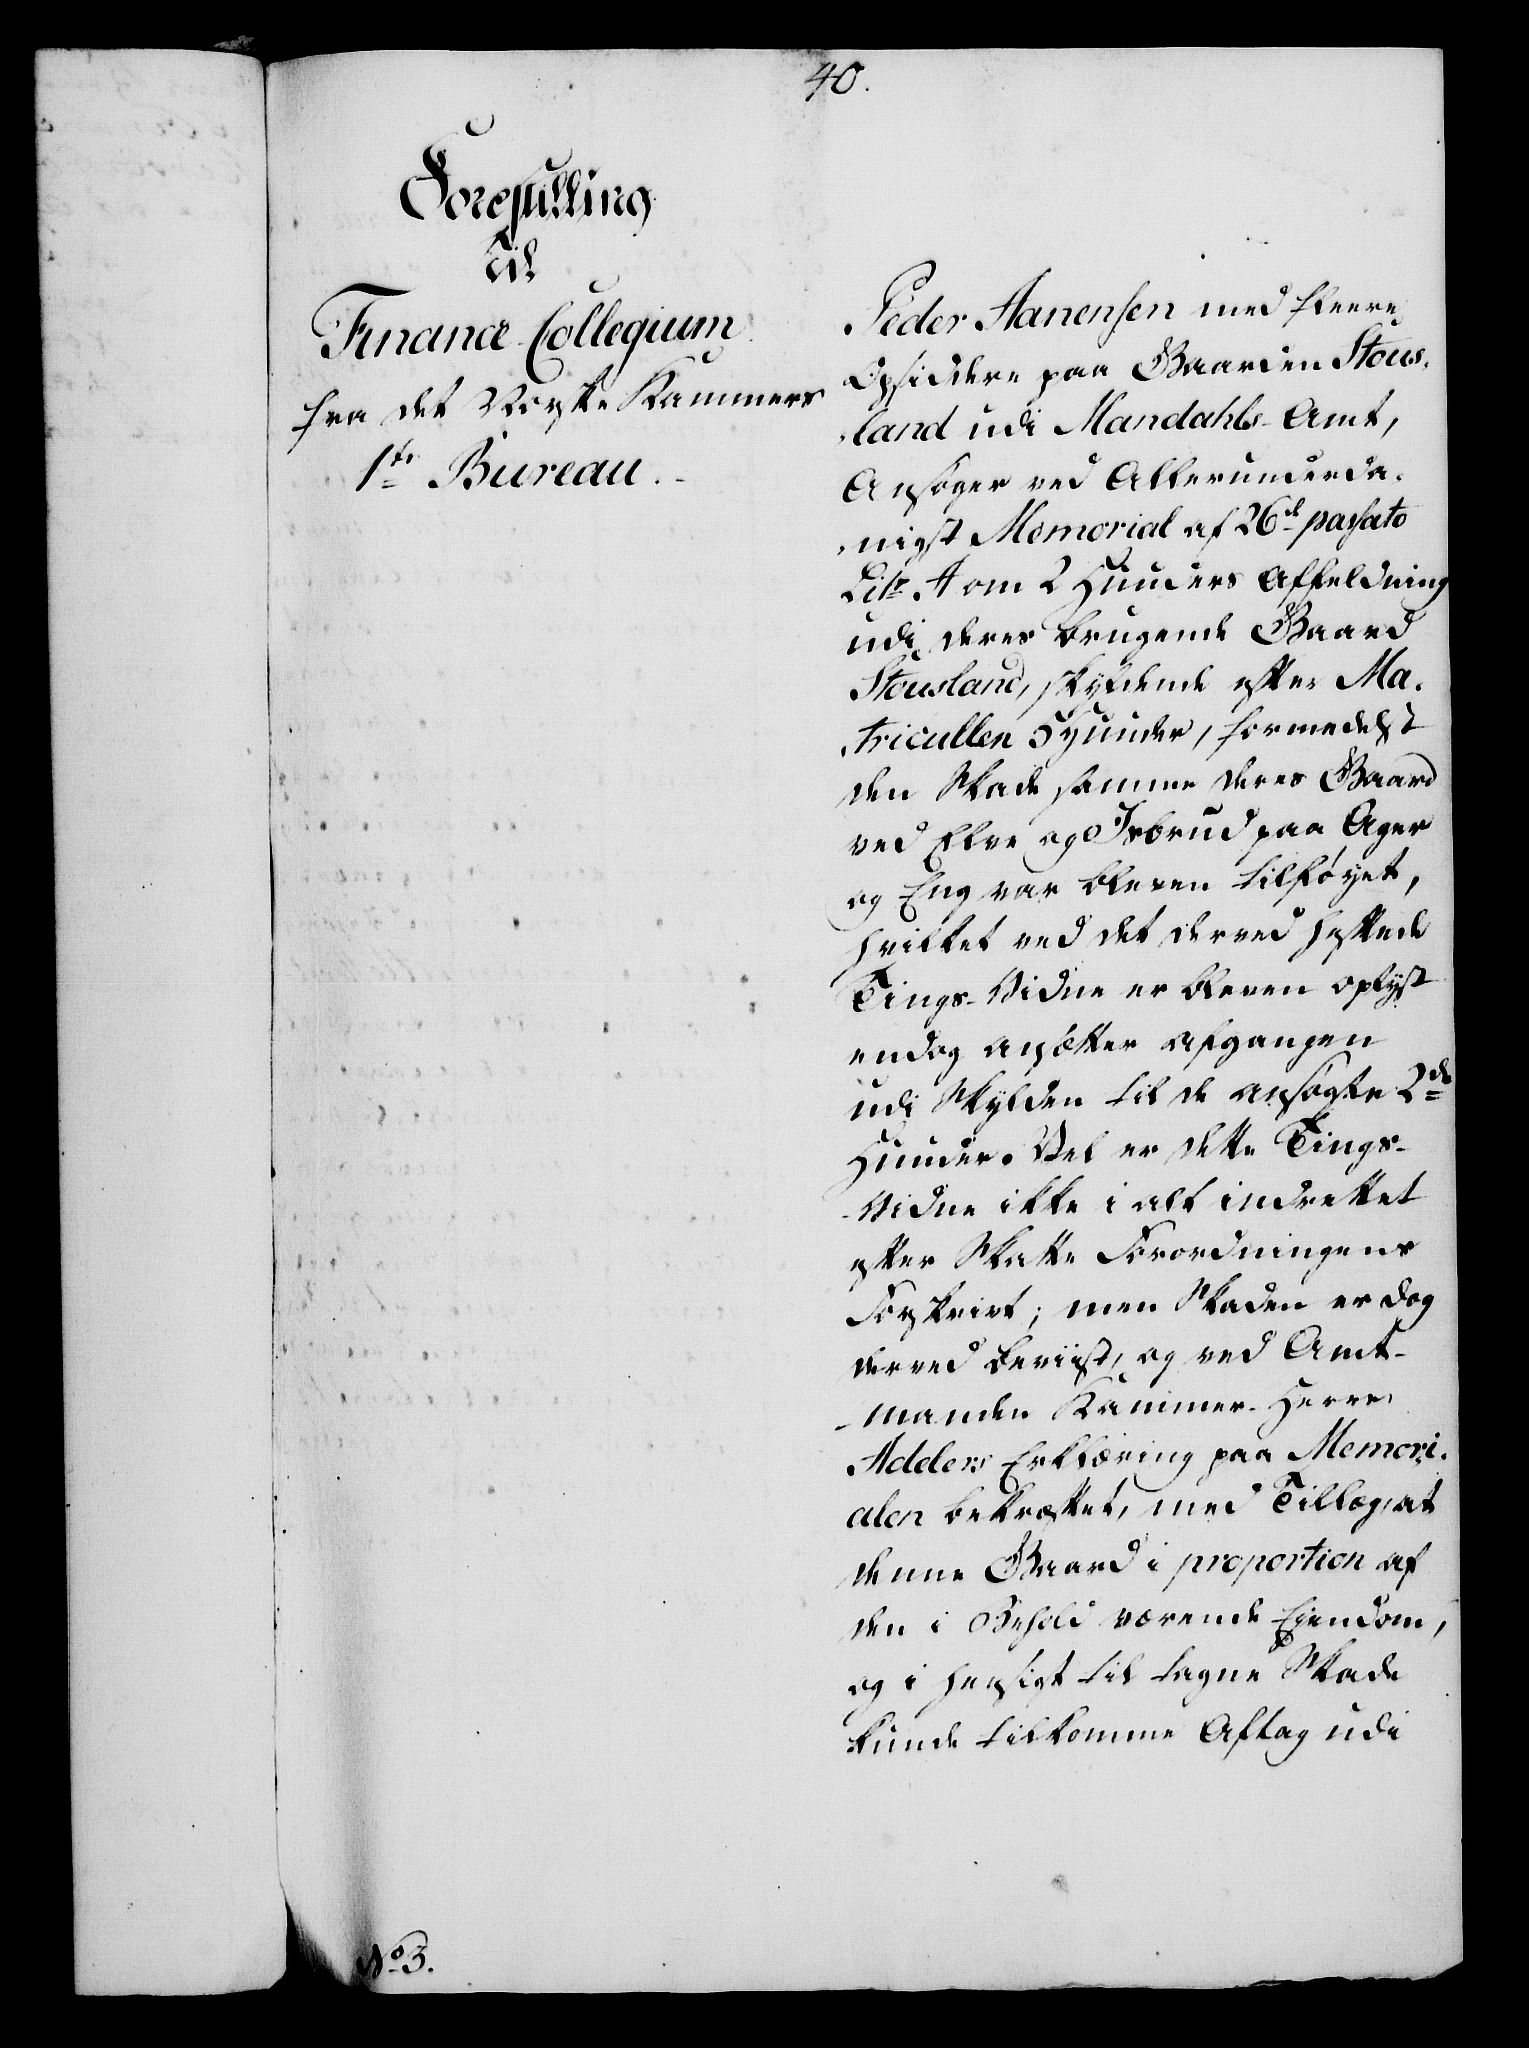 40.
Forestilling
Til
Finance-Collegium
fra det Norske Kammers
1te Bureau.
Peder Aanensen med fleere
Opsiddere paa Gaarden Stous-
land udi Mandahls-Amt,
Ansøger ved Allerunderda-
nigst Memorial af 26de passato
Litr. A om 2 Huuders Affeldning
udi deres brugende Gaard
Stousland, skyldende efter Ma-
tricullen 5 huuder, formedelst
den Skade samme deres Gaard
ved Elve og Isbrud paa Ager
og Eng var bleven tilføyet,
hvilket ved det derved heftede
Tings-Vidne er bleven oplyst
endog ansætter afgangen
udi Skylden til de ansøgte 2de
Huuder. Vel er dette Tings-
Vidne ikke i alt indrettet
efter Skatte Forordningens
Forskrivt; men Skaden er dog
derved beviist, og ved Amt-
manden Kammer-Herre
Adelers Erklæring paa Memori-
alen bekræftet, med Tillæg, at
denne Gaard i proportion af
den i Behold værende Ejendom,
og i hensigt til tagne Skade
kunde tilkomme Aftag udi
No 3.